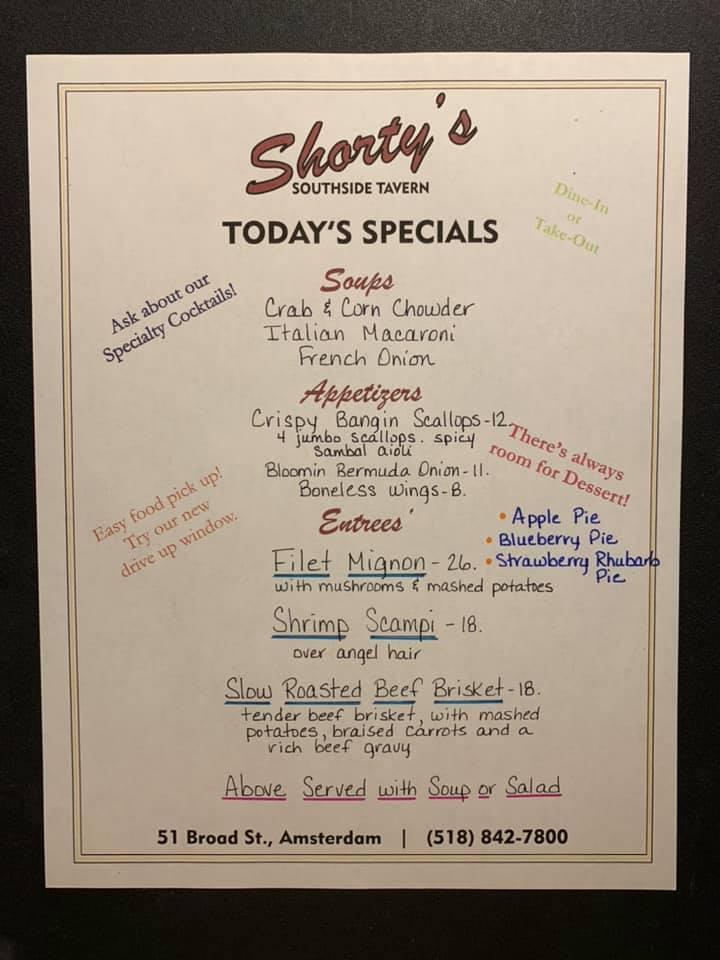 Shorty's
SOUTHSIDE TAVERN
TODAY'S SPECIALS
Dine-In
or
Take-Out
Ask about our
Specialty Cocktails!
Soups
Crab & Corn Chowder
Italian Macaroni
French Onion
Appetizers
Crispy Bangin Scallops-12.
4 jumbo scallops. spicy
sambal aioli
Bloomin Bermuda Onion-11.
Boneless Wings-8.
There's always
room for Dessert!
• Apple Pie
• Blueberry Pie
• Strawberry Rhubarb
Pie
Easy food pick up!
Try our new
drive up window.
Entrees'
Filet Mignon - 26.
with mushrooms & mashed potatoes
Shrimp Scampi - 18.
over angel hair
Slow Roasted Beef Brisket-18.
tender beef brisket, with mashed
potatoes, braised carrots and a
rich beef gravy
Above Served with Soup or Salad
51 Broad St., Amsterdam | (518) 842-7800